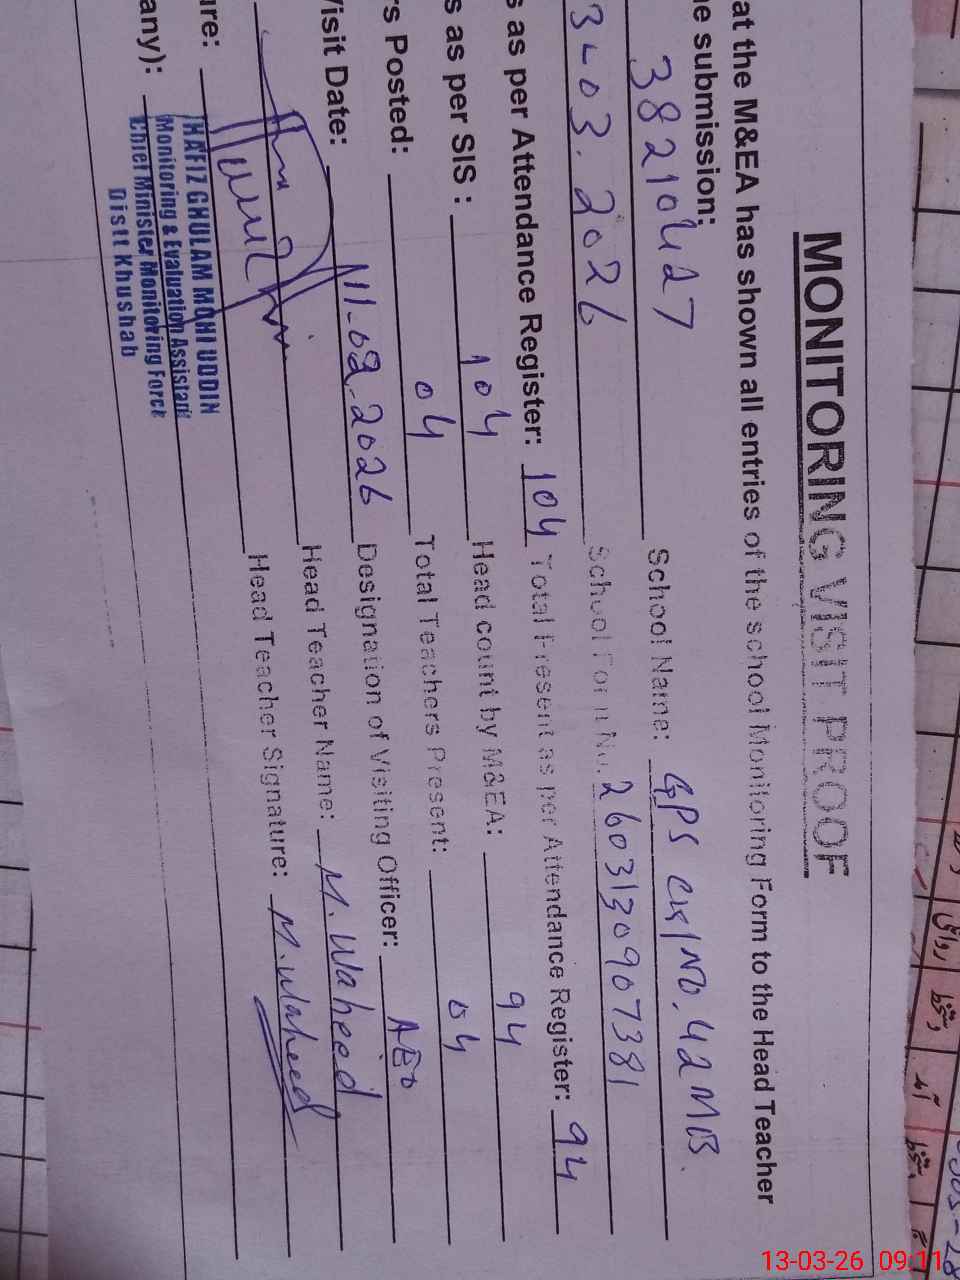 MONITORING VISIT PROOF
at the M&EA has shown all entries of the school Monitoring Form to the Head Teacher
e submission:
38210427 School Name: GPS CH NO. 42 MB.
3-03.2026 School Form No. 2603130907381
s as per Attendance Register: 104 Total Present as per Attendance Register: 94
s as per SIS : 104 Head count by M&EA: 94
rs Posted: 04 Total Teachers Present: 04
Visit Date: 11-02-2026 Designation of Visiting Officer: AEO
Head Teacher Name: M. Waheed
ure: Head Teacher Signature: M. Waheed
any):
HAFIZ GHULAM MOHI UDDIN
Monitoring & Evaluation Assistant
Chief Minister Monitoring Force
Distt Khushab
13-03-26 09:11